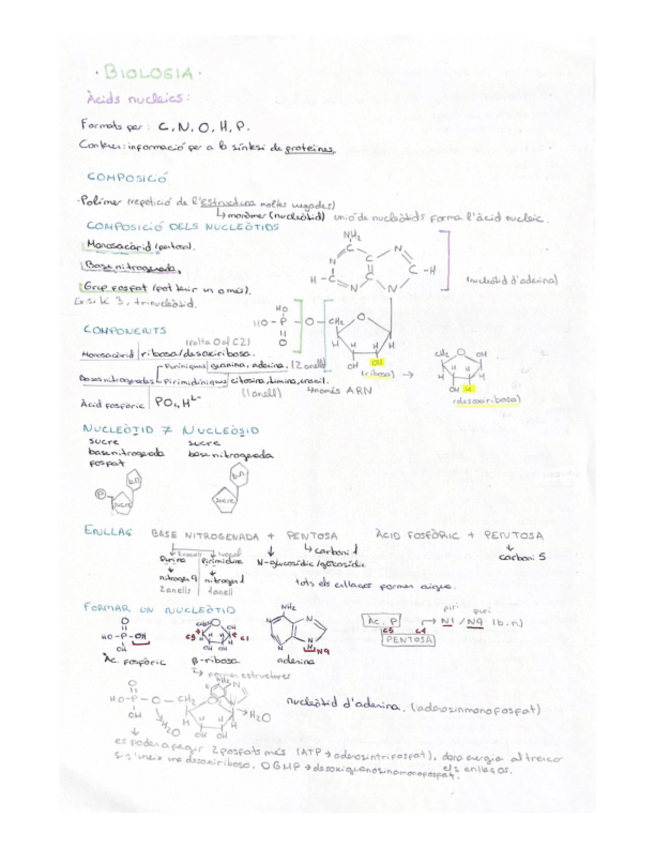 · BIOLOGIA ·
Àcids nucleics:
Formats per: C, N, O, H, P.
Contenen informació per a la síntesi de proteïnes.
COMPOSICIÓ
·Polímer (repetició de l'estructura moltes vegades)
↳ monòmer (nucleòtid) unió de nucleòtids forma l'àcid nucleic.
COMPOSICIÓ DELS NUCLEÒTIDS
Monosacàrid (pentosa).
Base nitrogenada.
Grup fosfat (pot tenir un o més).
Ex: si té 3, trinucleòtid.
NH₂
N C C N
H-C N C N C-H
(nucleòtid d'adenina)
HO
HO-P-O-CH₂ O
O
H H H H
OH OH
(ribosa) →
CH₂ O OH
H H H H
OH H
(desoxiribosa)
COMPONENTS
(falta O al C2)
Monosacàrid | ribosa/desoxiribosa.
Bases nitrogenades
Púriniques | guanina, adenina. (2 anells)
Pirimidíniques | citosina, timina, uracil.
(1 anell) ↳ només ARN
Àcid fosfòric | PO₄H²⁻
NUCLEÒTID ≠ NUCLEÒSID
sucre sucre
base nitrogenada base nitrogenada
fosfat
P sucre b.n
sucre b.n
ENLLAÇ BASE NITROGENADA + PENTOSA ÀCID FOSFÒRIC + PENTOSA
↳ carboni 1 carboni 5
Purina Pirimidina N-glucosídic/glicosídic
nitrogen 9 nitrogen 1 tots els enllaços formen aigua.
2 anells 1 anell
FORMAR UN NUCLEÒTID
O
HO-P-OH
OH
C5 C1
NH₂
N9
Àc. fosfòric β-ribosa adenina
↳ formen estructures
Ac. P
C5 C1
PENTOSA
piri puri
→ N1 / N9 (b.n)
O
HO-P-O-CH₂
OH
H₂O
H₂O
OH OH
nucleòtid d'adenina. (adenosinmonofosfat)
es poden afegir 2 fosfats més (ATP → adenosintrifosfat), dona energia al trencar
els enllaços.
si s'uneix una desoxiribosa, DGMP → desoxiguanosinamonofosfat.